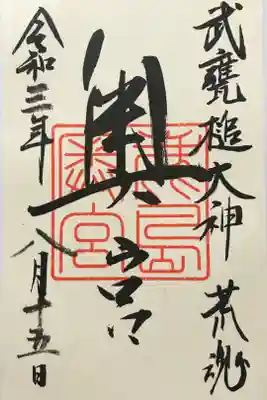 武甕槌大神 荒魂
奥宮
鹿島奥宮
令和三年 八月十五日